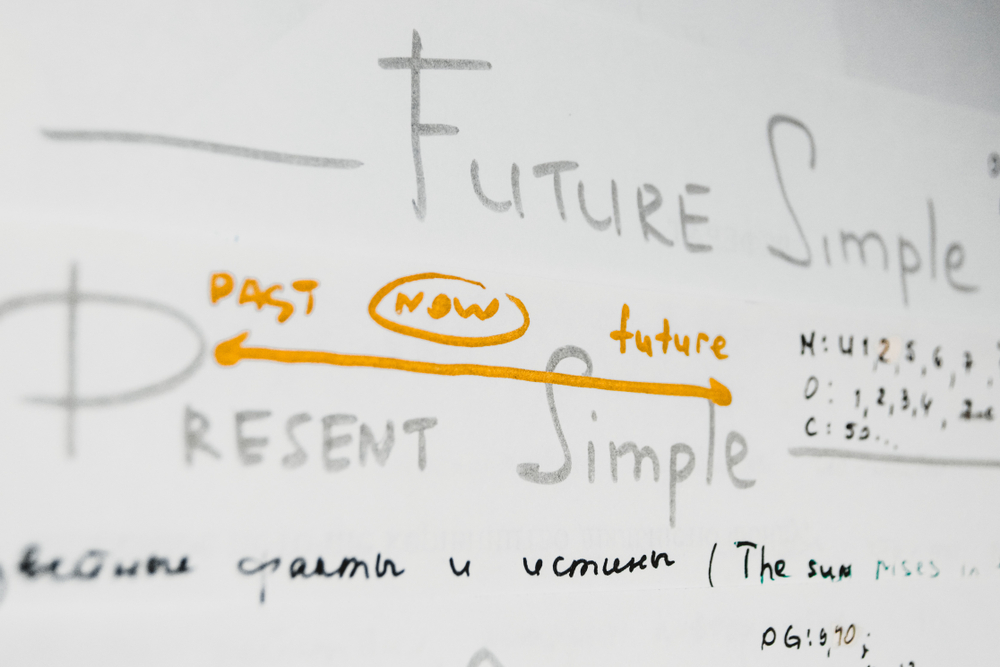 FUTURE Simple
PAST NOW future
PRESENT Simple
M: U 1,2,5,6,7
O: 1,2,3,4,
C: 59...
факты и истины (The sun rises in
PG: 9,10;